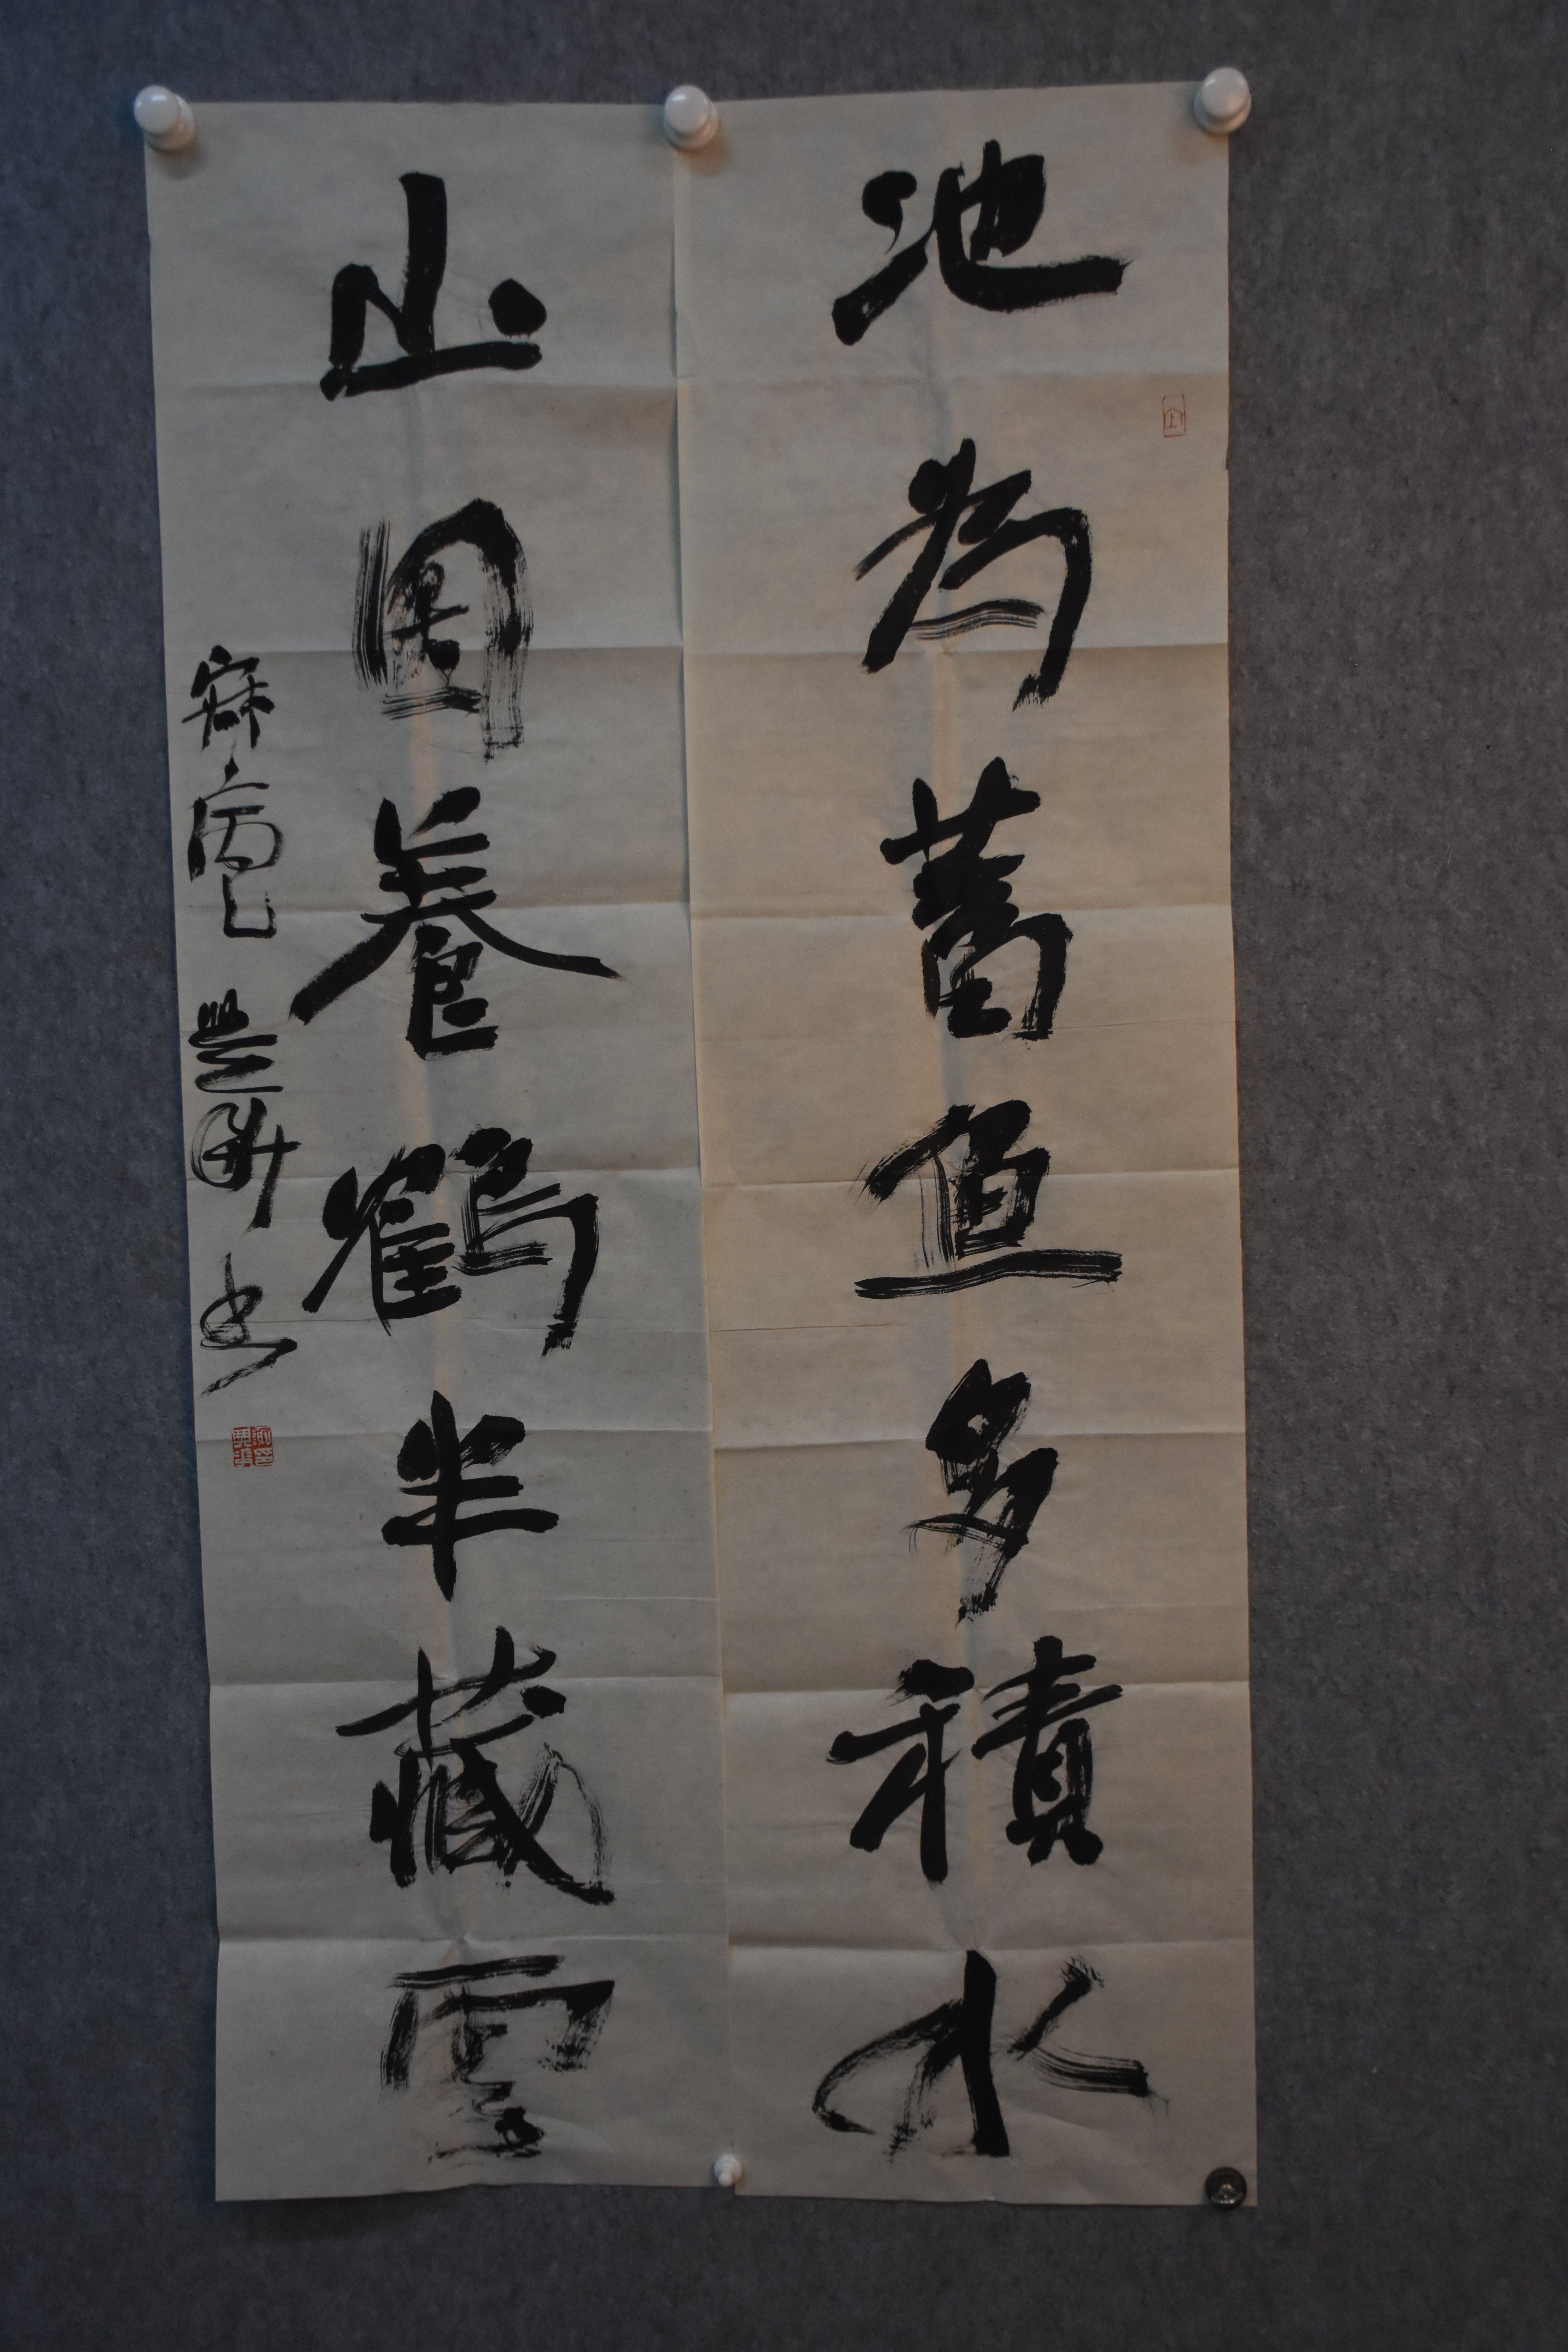 池為蓄魚多積水
山因養鶴半藏雲
丙
書